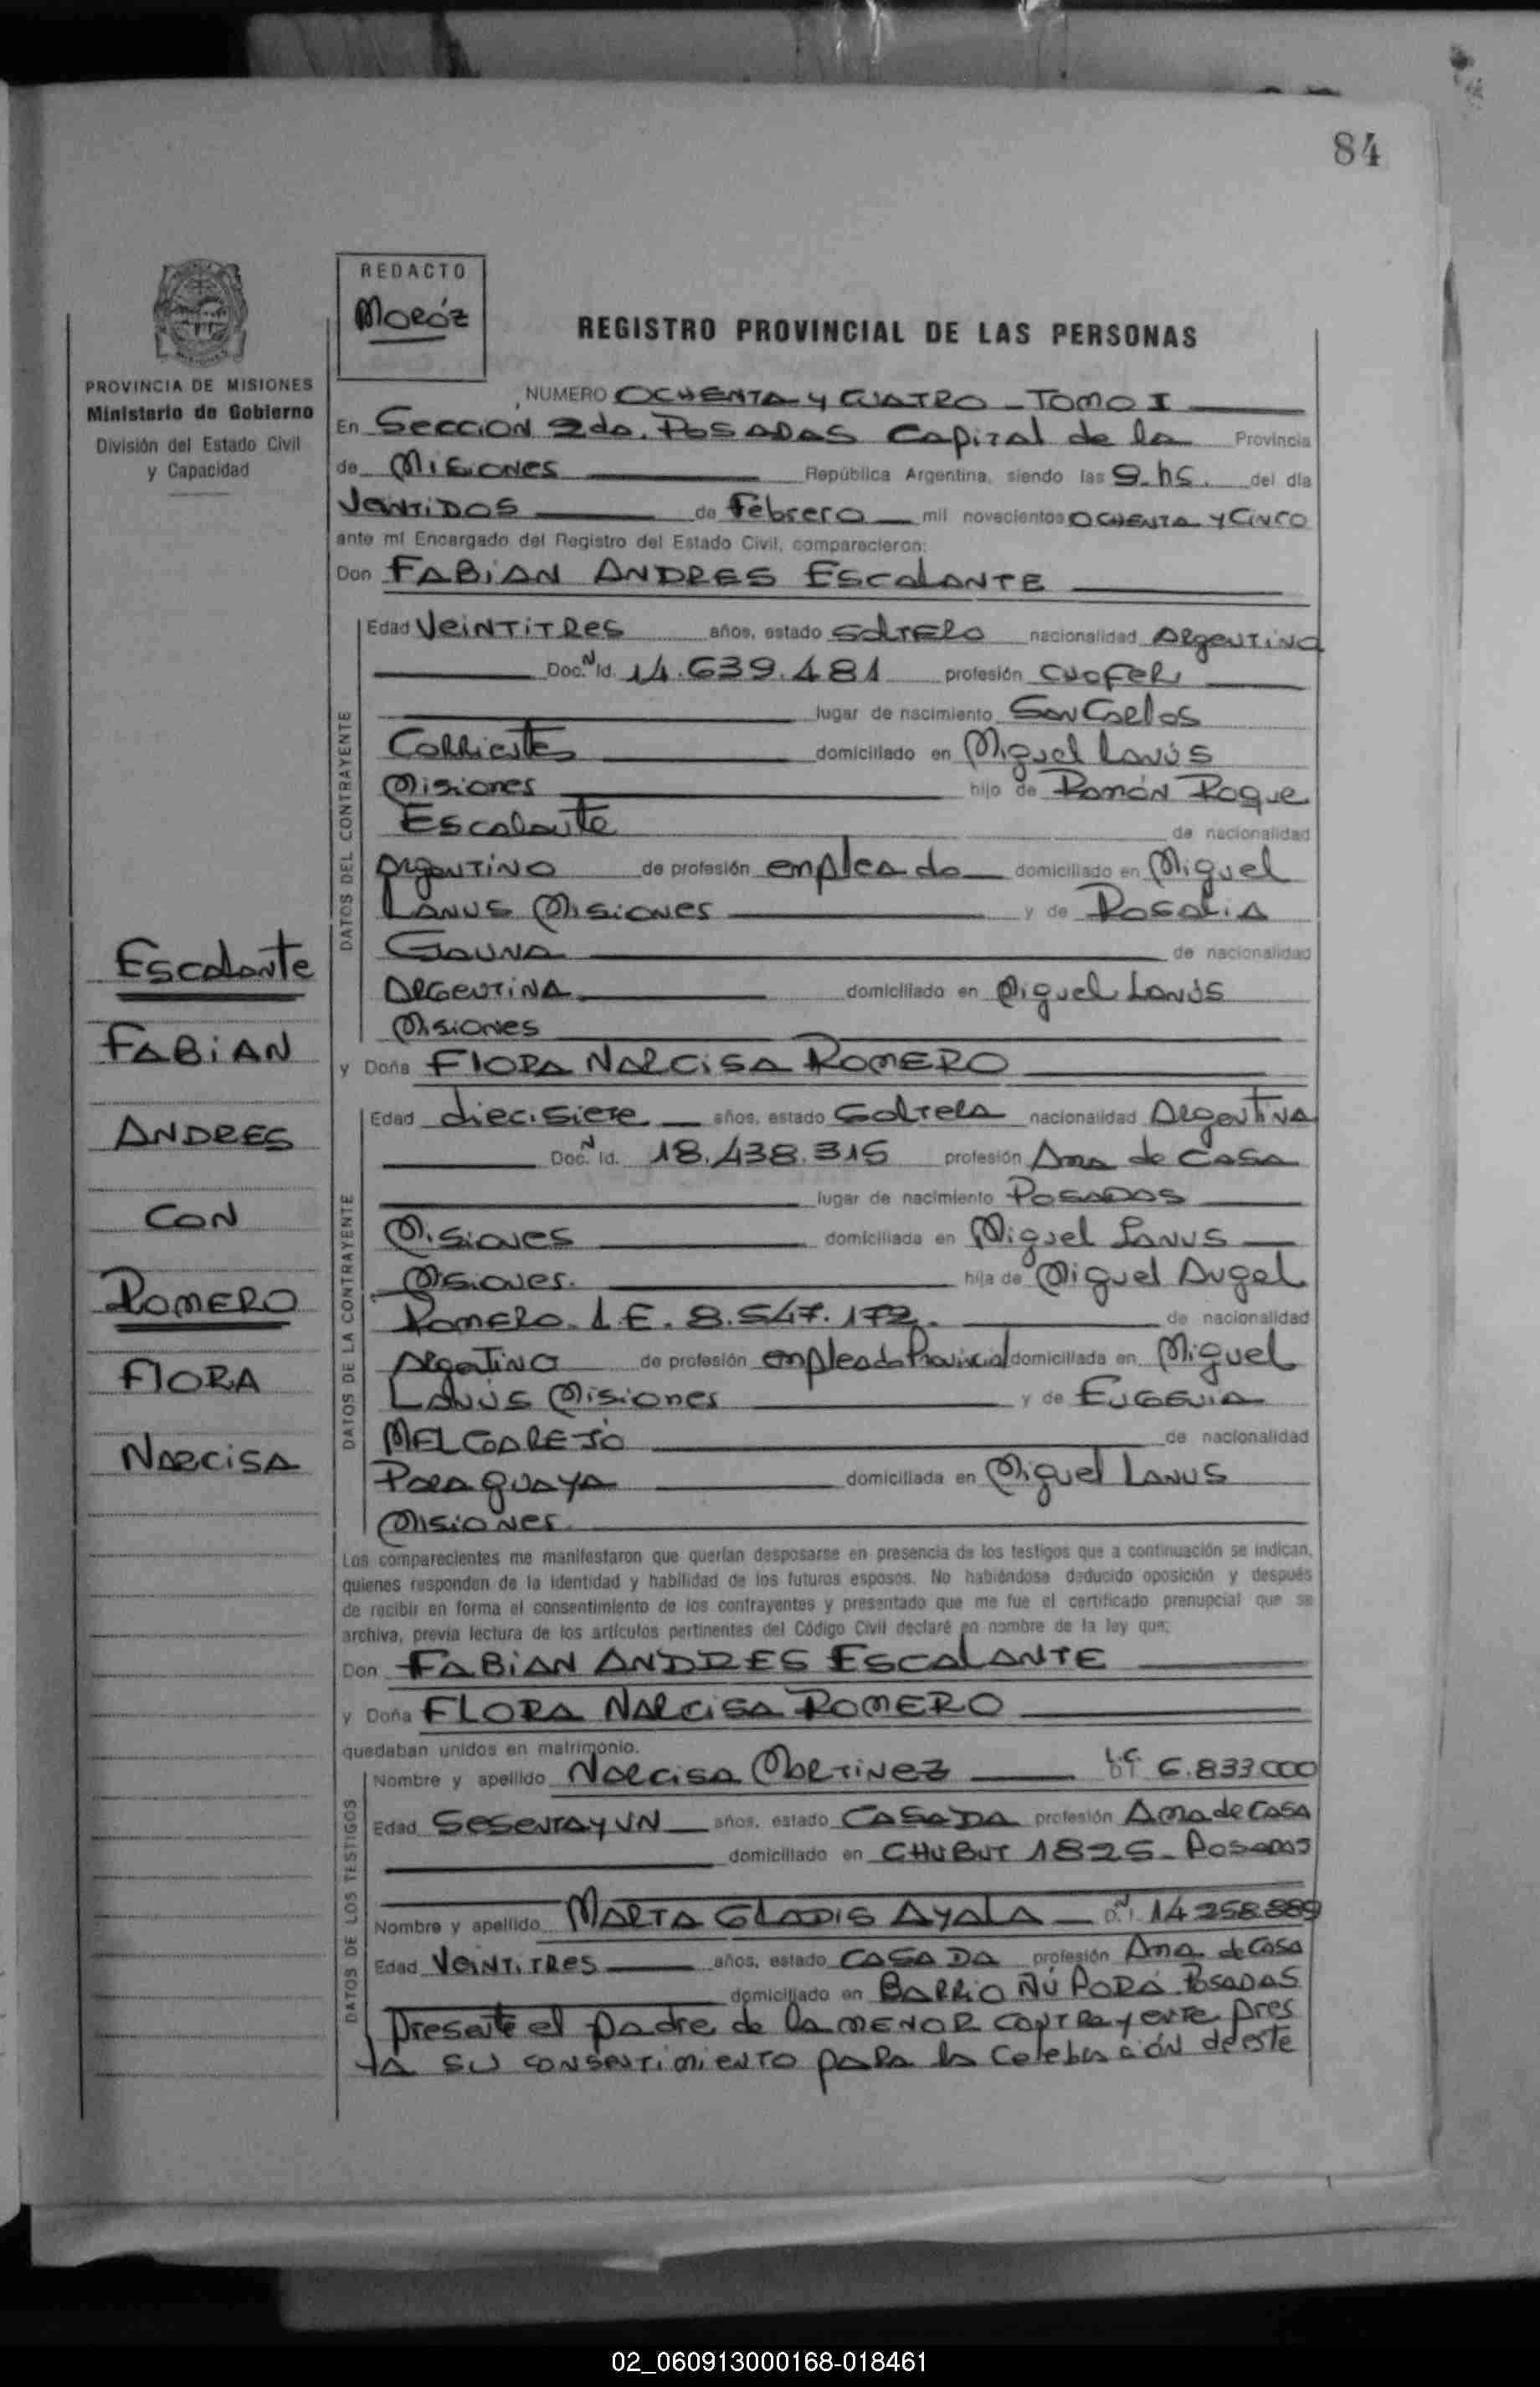 84
REDACTO
Moróz
REGISTRO PROVINCIAL DE LAS PERSONAS
PROVINCIA DE MISIONES
Ministerio de Gobierno
División del Estado Civil
y Capacidad
NUMERO OCHENTA y CUATRO - TOMO I
En SECCION 2da. POSADAS Capital de la Provincia
de Misiones República Argentina, siendo las 9. hs. del día
Ventidos de Febrero mil novecientos OCHENTA Y CINCO
ante mí Encargado del Registro del Estado Civil, comparecieron:
Don FABIAN ANDRES ESCALANTE
Edad VeinTiTRes años, estado SOLTERO nacionalidad Argentino
Doc. N Id. 14.639.481 profesión CHOFER
lugar de nacimiento San Carlos
Corrientes domiciliado en Miguel Lanús
Misiones hijo de Ramón Roque
Escalante de nacionalidad
Argentino de profesión empleado domiciliado en Miguel
Lanus Misiones y de Rosalia
Gauna de nacionalidad
Argentina domiciliado en Miguel Lanús
Misiones
y Doña FLORA NARCISA ROMERO
Edad diecisiete años, estado Soltera nacionalidad Argentina
Doc. N Id. 18.438.315 profesión Ama de Casa
lugar de nacimiento POSADAS
Misiones domiciliada en Miguel Lanus
Misiones. hija de Miguel Angel
Romero. L.E. 8.547.172. de nacionalidad
Argentino de profesión empleado Provincial domiciliada en Miguel
Lanús Misiones y de EUGENIA
MELGAREJO de nacionalidad
Paraguaya domiciliada en Miguel Lanus
Misiones.
Los comparecientes me manifestaron que querían desposarse en presencia de los testigos que a continuación se indican,
quienes responden de la identidad y habilidad de los futuros esposos. No habiéndose deducido oposición y después
de recibir en forma el consentimiento de los contrayentes y presentado que me fue el certificado prenupcial que se
archiva, previa lectura de los artículos pertinentes del Código Civil declaré en nombre de la ley que:
Don FABIAN ANDRES ESCALANTE
y Doña FLORA NARCISA ROMERO
quedaban unidos en matrimonio.
Nombre y apellido Narcisa Martinez L.C. 6.833.000
Edad Sesentay un años, estado CASADA profesión Ama de Casa
domiciliado en CHUBUT 1825 - Posadas
Nombre y apellido MARTA GLADIS AYALA D.N.I. 14.258.889
Edad VeinTiTRes años, estado CASADA profesión Ama de Casa
domiciliado en BARRIO ÑU PORÁ. POSADAS
Presente el padre de la MENOR contrayente pres
ta su consentimiento para la Celebración de este
DATOS DEL CONTRAYENTE
DATOS DE LA CONTRAYENTE
DATOS DE LOS TESTIGOS
Escalante
FABIAN
ANDRES
CON
ROMERO
FLORA
NARCISA
02_060913000168-018461